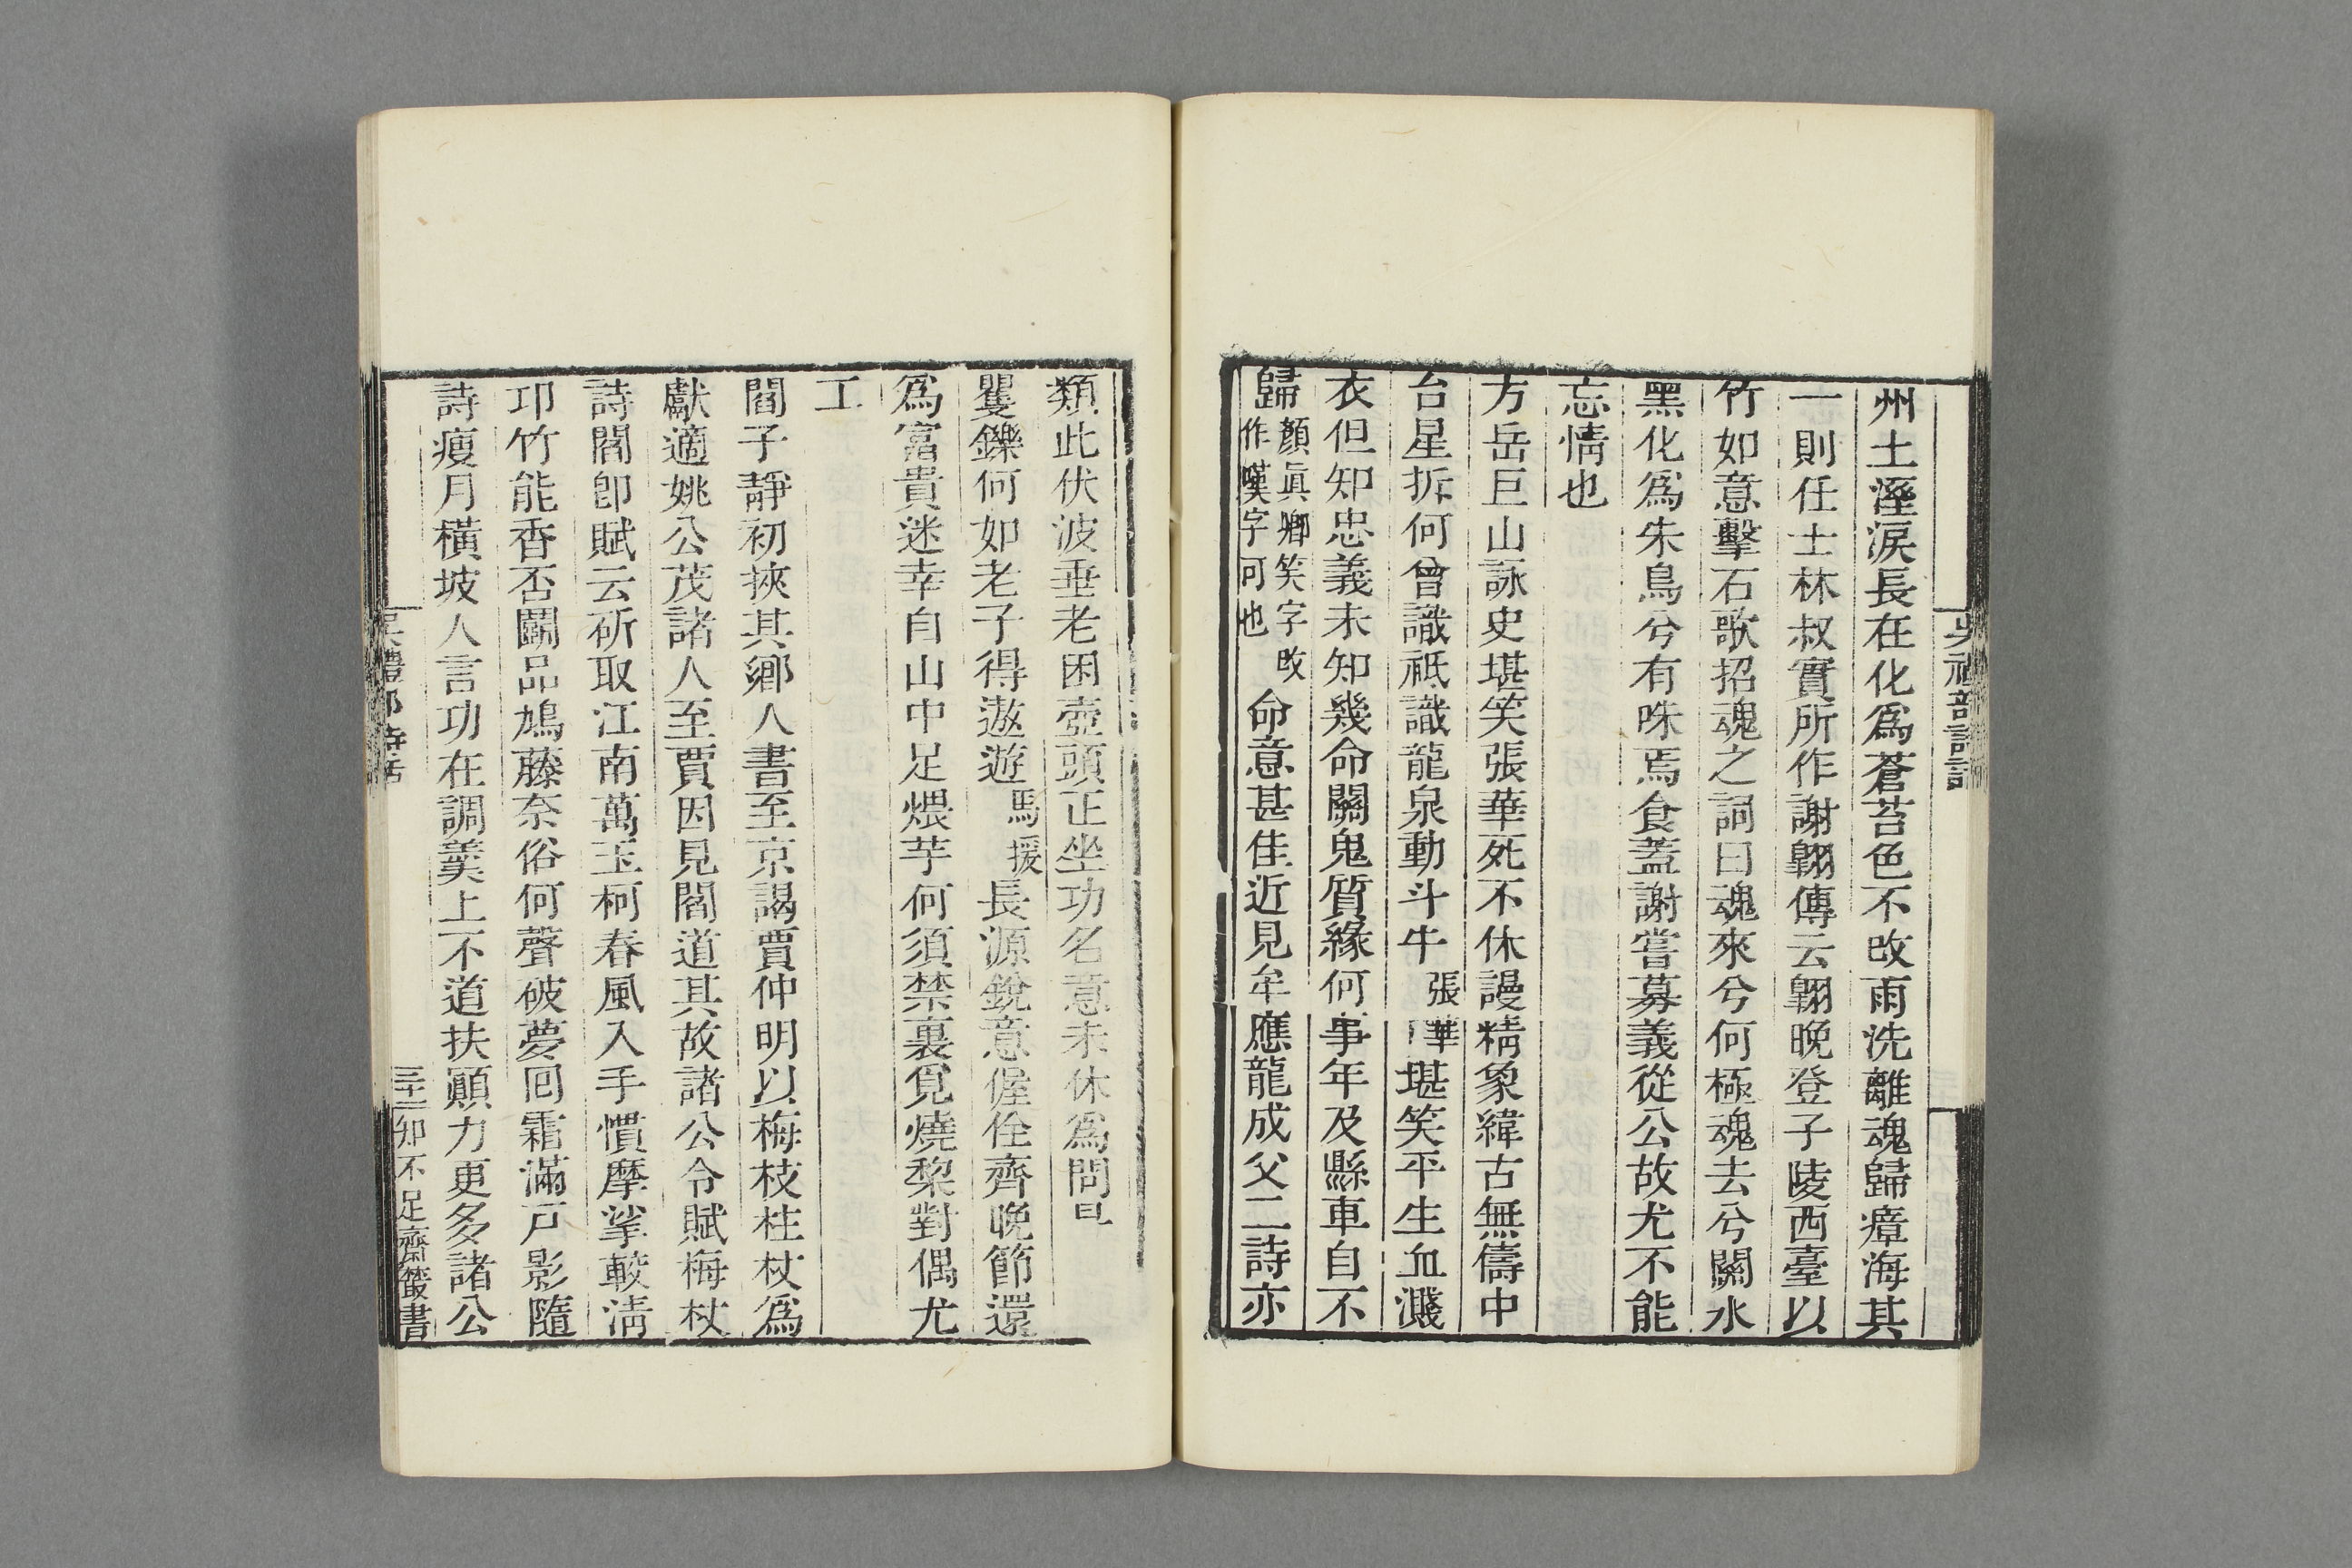 州土溼淚長在化爲蒼苔色不改雨洗離魂歸瘴海其
一則任士林叔實所作謝翺傳云翺晚登子陵西臺以
竹如意擊石歌招魂之詞曰魂來兮何極魂去兮關水
黑化爲朱鳥兮有咮焉食蓋謝嘗募義從公故尤不能
忘情也
方岳巨山詠史堪笑張華死不休謾精象緯古無儔中
台星拆何曾識祗識龍泉動斗牛張華堪笑平生血濺
衣但知忠義未知幾命關鬼質緣何事年及縣車自不
歸顏眞卿笑字改作嘆字可也命意甚佳近見牟應龍成父二詩亦
類此伏波垂老困壺頭正坐功名意未休爲問
矍鑠何如老子得遨遊馬援長源銳意偓佺齊晚節還
爲富貴迷幸自山中足煨芋何須禁裏覓燒棃對偶尤
工
閻子靜初挾其鄉人書至京謁賈仲明以梅枝柱杖爲
獻適姚公茂諸人至賈因見閻道其故諸公令賦梅杖
詩閻卽賦云斫取江南萬玉柯春風入手慣摩挲較淸
卭竹能香否鬭品鳩藤奈俗何聲破夢回霜滿戸影隨
詩瘦月橫坡人言功在調羹上不道扶顚力更多諸公
吳禮部詩話
三十二知不足齋叢書